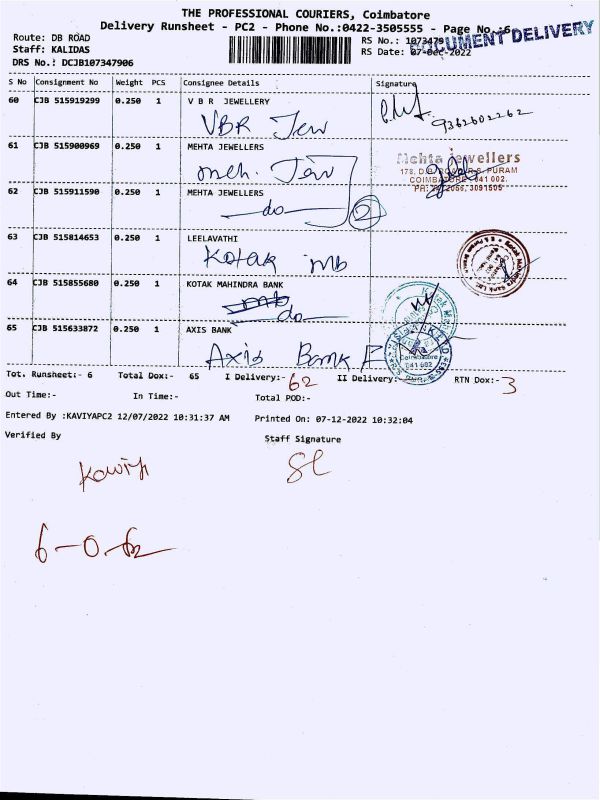 THE PROFESSIONAL COURIERS, Coimbatore
Delivery Runsheet - PC2 - Phone No.:0422-3505555 - Page No.:6
DOCUMENT DELIVERY
Route: DB ROAD RS No.: 1073479
Staff: KALIDAS RS Date: 07-Dec-2022
DRS No.: DCJB107347906
S No Consignment No Weight PCS Consignee Details Signature
60 CJB 515919299 0.250 1 V B R JEWELLERY
VBR Jew 9362602262
61 CJB 515900969 0.250 1 MEHTA JEWELLERS
meh. Jew
Mehta Jewellers
COIMBATORE 641 002.
62 CJB 515911590 0.250 1 MEHTA JEWELLERS
do 2
63 CJB 515814653 0.250 1 LEELAVATHI
Kotak mb
64 CJB 515855680 0.250 1 KOTAK MAHINDRA BANK
do
65 CJB 515633872 0.250 1 AXIS BANK
Axis Bank
Coimbatore
641 002
Tot. Runsheet:- 6 Total Dox:- 65 I Delivery:- 62 II Delivery:- RTN Dox:- 3
Out Time:- In Time:- Total POD:-
Entered By :KAVIYAPC2 12/07/2022 10:31:37 AM Printed On: 07-12-2022 10:32:04
Verified By Staff Signature
6-0-62